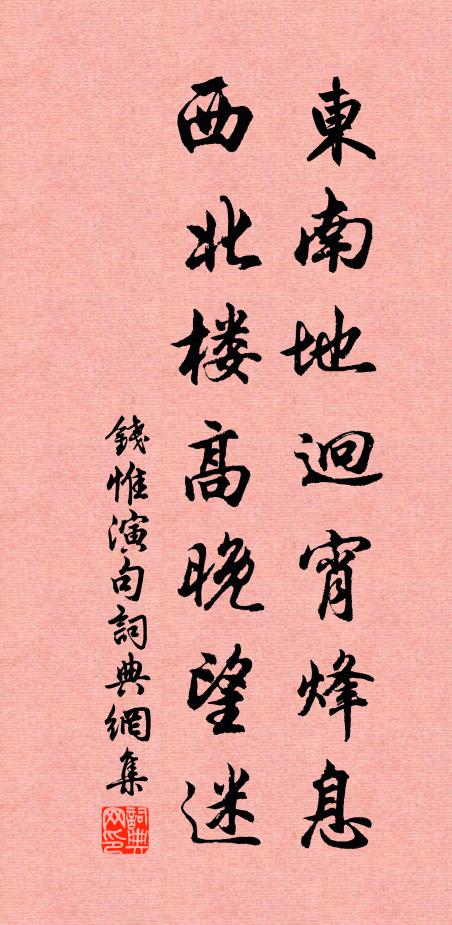 東南地迴宵烽息
西北楼高晚望迷
錢惟演句詞典網集
詞典网印